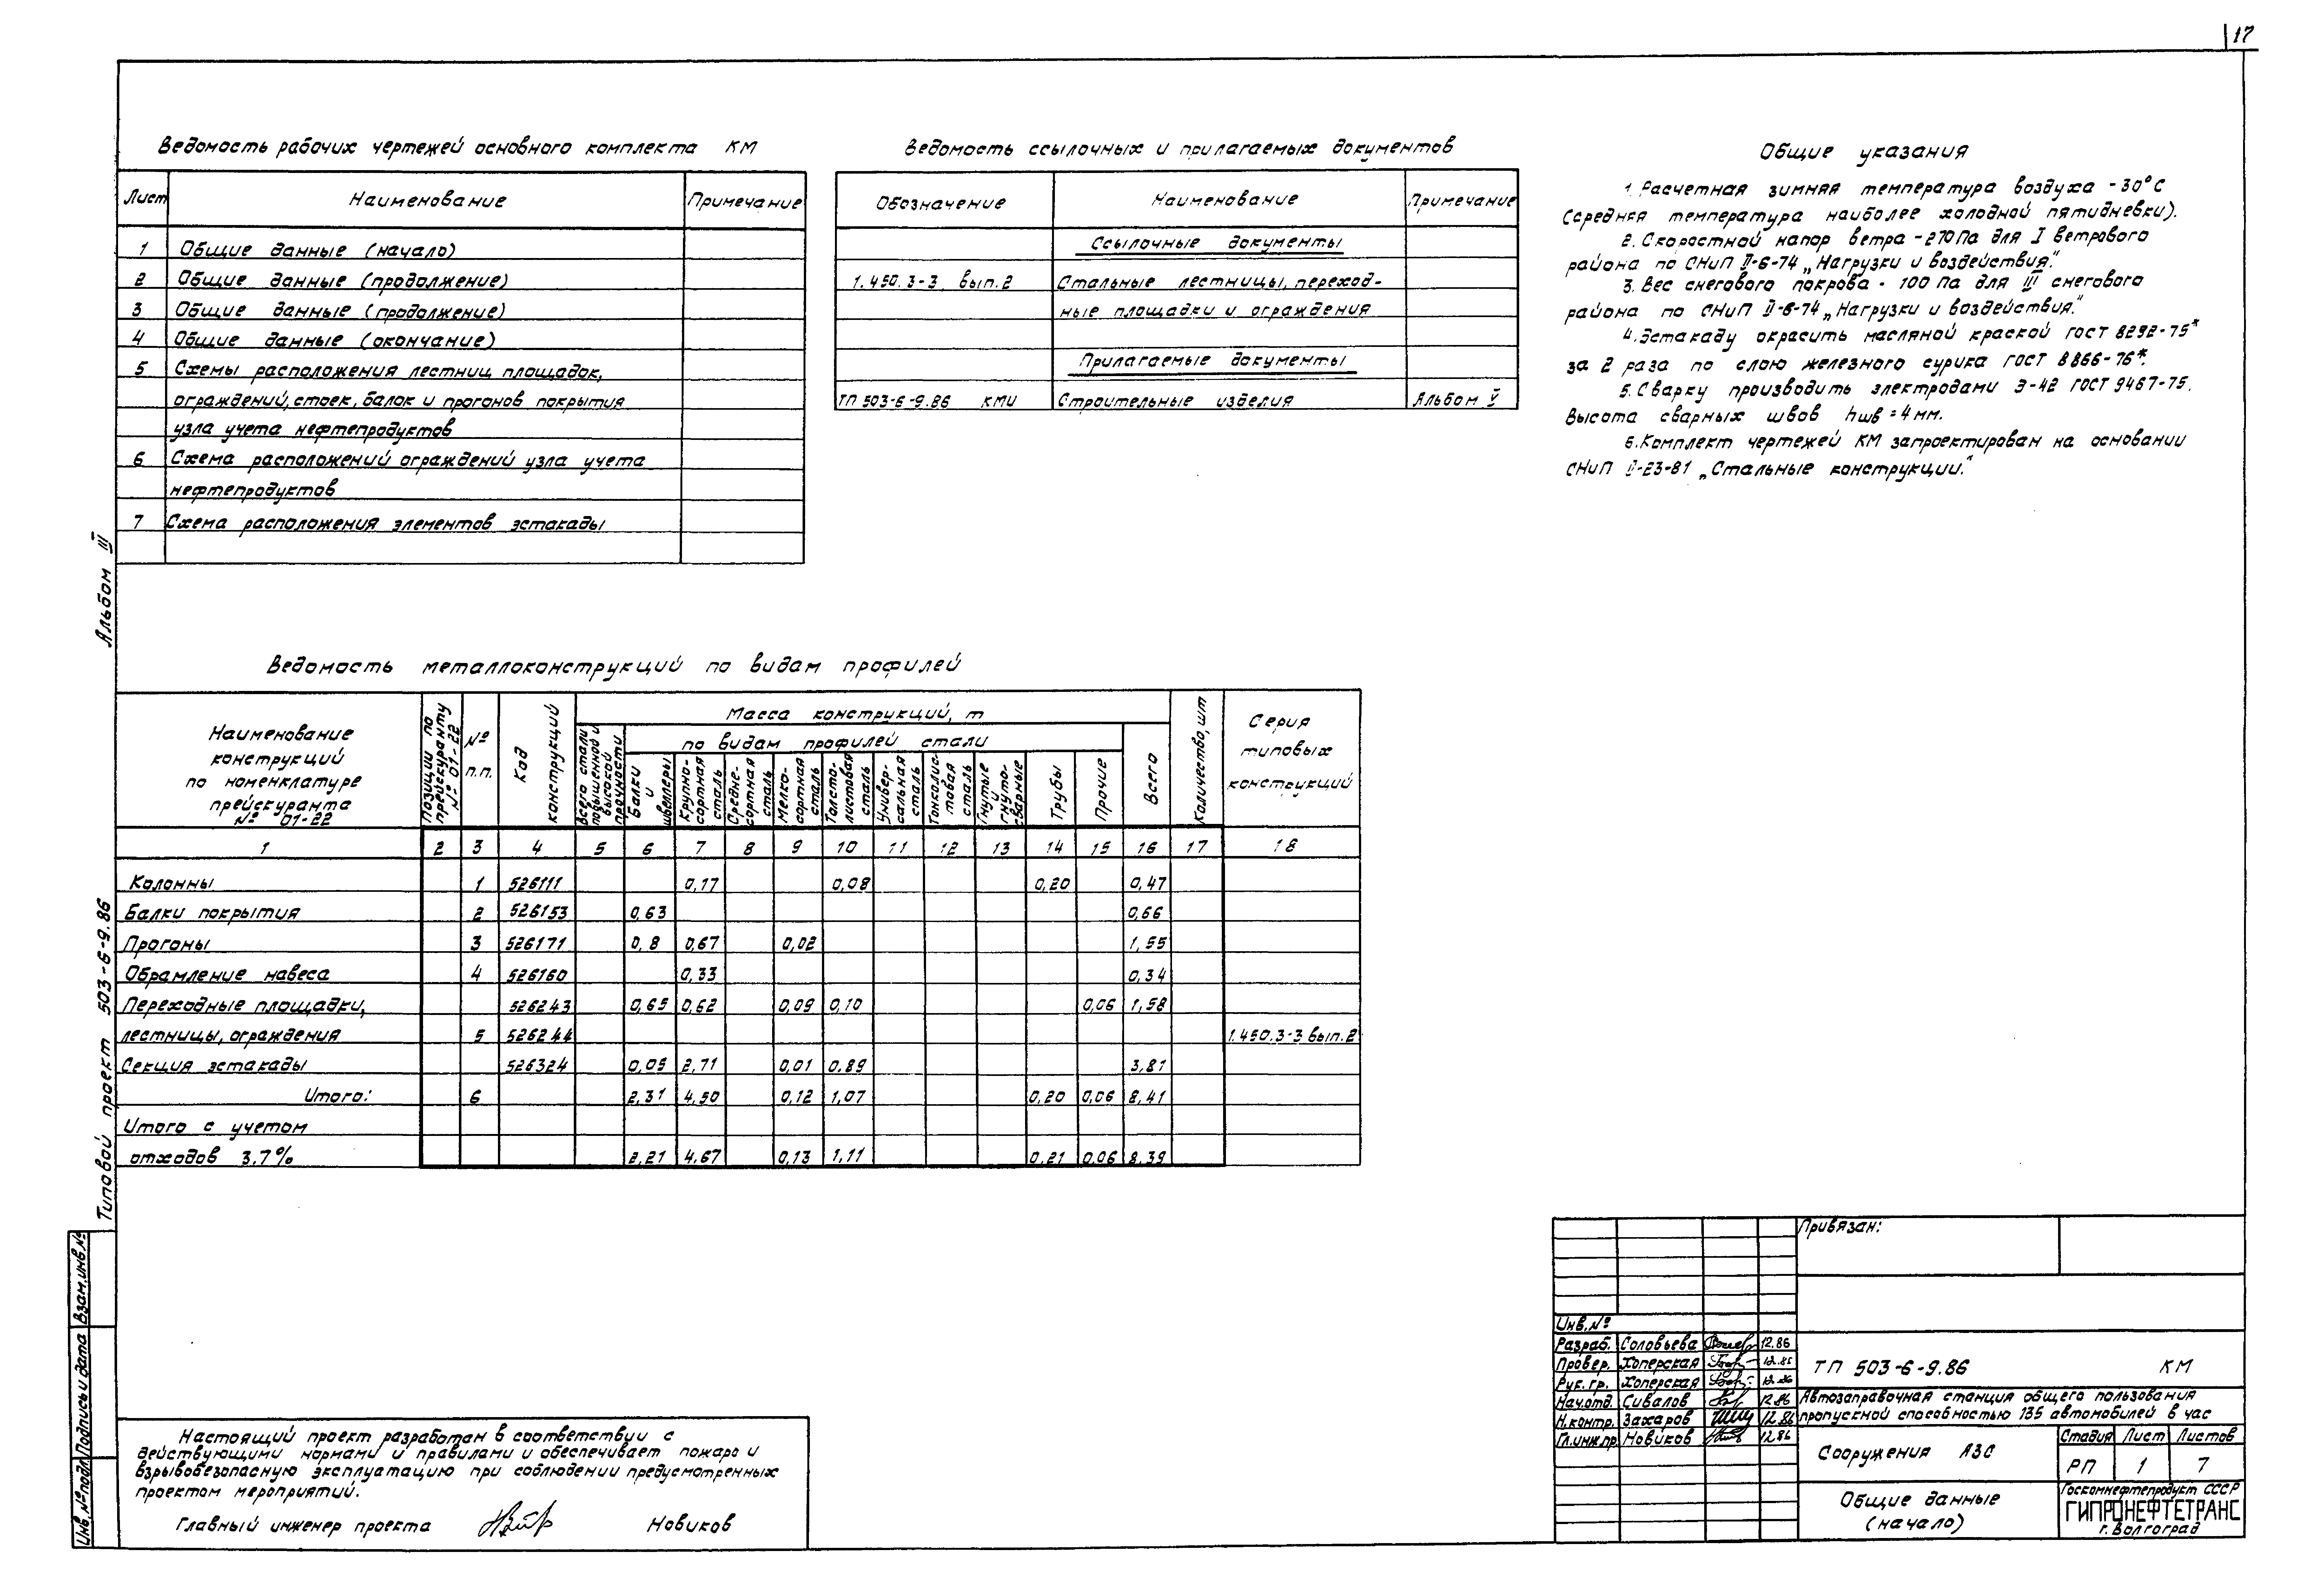 17
Ведомость рабочих чертежей основного комплекта КМ
Лист Наименование Примечание
1 Общие данные (начало)
2 Общие данные (продолжение)
3 Общие данные (продолжение)
4 Общие данные (окончание)
5 Схемы расположения лестниц площадок,
ограждений, стоек, балок и прогонов покрытия
узла учета нефтепродуктов
6 Схема расположений ограждений узла учета
нефтепродуктов
7 Схема расположения элементов эстакады
Ведомость ссылочных и прилагаемых документов
Обозначение Наименование Примечание
Ссылочные документы
1.450.3-3 вып.2 Стальные лестницы, переход-
ные площадки и ограждения
Прилагаемые документы
ТП 503-6-9.86 КМИ Строительные изделия Альбом V
Общие указания
1. Расчетная зимняя температура воздуха -30°С
(средняя температура наиболее холодной пятидневки).
2. Скоростной напор ветра -270 Па для I ветрового
района по СНиП II-6-74 „Нагрузки и воздействия".
3. Вес снегового покрова - 100 Па для III снегового
района по СНиП II-6-74 „Нагрузки и воздействия."
4. Эстакаду окрасить масляной краской ГОСТ 8292-75*
за 2 раза по слою железного сурика ГОСТ 8866-76*.
5. Сварку производить электродами Э-42 ГОСТ 9467-75.
Высота сварных швов hшв = 4 мм.
6. Комплект чертежей КМ запроектирован на основании
СНиП II-23-81 „Стальные конструкции."
Альбом III
Типовой проект 503-6-9.86
Ведомость металлоконструкций по видам профилей
Наименование
конструкций
по номенклатуре
прейскуранта
№ 01-22
Позиции по
прейскуранту
№ 01-22
№
п.п.
Код
конструкций
Масса конструкций, т
Всего стали
повышенной и
высокой
прочности
по видам профилей стали
Балки
и
швеллеры
Крупно-
сортная
сталь
Средне-
сортная
сталь
Мелко-
сортная
сталь
Толсто-
листовая
сталь
Универ-
сальная
сталь
Тонколис-
товая
сталь
Гнутые
и
гнуто-
сварные
Трубы
Прочие
Всего
Количество, шт
Серия
типовых
конструкций
1 2 3 4 5 6 7 8 9 10 11 12 13 14 15 16 17 18
Колонны 1 526111 0,17 0,08 0,20 0,47
Балки покрытия 2 526153 0,63 0,66
Прогоны 3 526171 0,8 0,67 0,02 1,55
Обрамление навеса 4 526160 0,33 0,34
Переходные площадки, 526243 0,65 0,62 0,09 0,10 0,06 1,58
лестницы, ограждения 5 526244 1.450.3-3 вып.2
Секция эстакады 526324 0,05 2,71 0,01 0,89 3,81
Итого: 6 2,31 4,50 0,12 1,07 0,20 0,06 8,41
Итого с учетом
отходов 3.7% 2,21 4,67 0,13 1,11 0,21 0,06 8,39
Настоящий проект разработан в соответствии с
действующими нормами и правилами и обеспечивает пожаро и
взрывобезопасную эксплуатацию при соблюдении предусмотренных
проектом мероприятий.
Главный инженер проекта Новиков
Взам.инв.№
Подпись и дата
Инв.№подл
Привязан:
Инв.№
Разраб. Соловьева 12.86
Провер. Хоперская 12.86
Рук. гр. Хоперская 12.86
Нач.отд. Сивалов 12.86
Н.контр. Захаров 12.86
Гл.инж.пр. Новиков 12.86
ТП 503-6-9.86 КМ
Автозаправочная станция общего пользования
пропускной способностью 135 автомобилей в час
Сооружения АЗС
Стадия Лист Листов
РП 1 7
Общие данные
(начало)
Госкомнефтепродукт СССР
ГИПРОНЕФТЕТРАНС
г. Волгоград